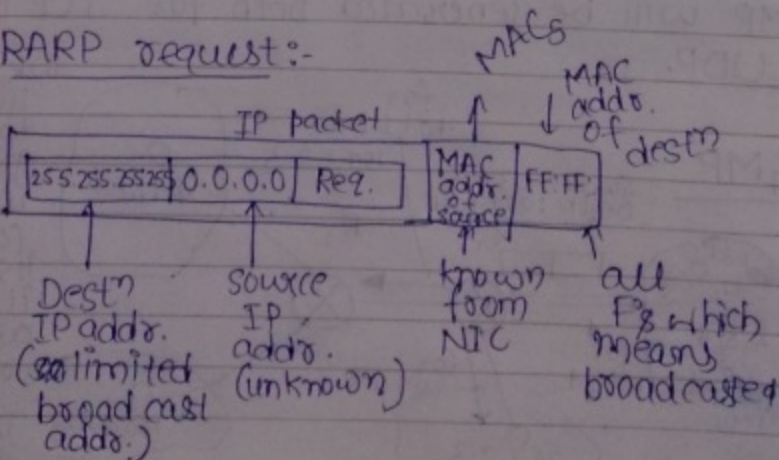 RARP request:-
MACs
MAC
addr.
of
destn
IP packet
255.255.255.255 0.0.0.0 Req.
MAC
addr.
of
source
FF:FF:
Destn
IP addr.
(limited
broadcast
addr.)
source
IP
addr.
(unknown)
known
from
NIC
all
F's which
means
broadcasted
UDP.